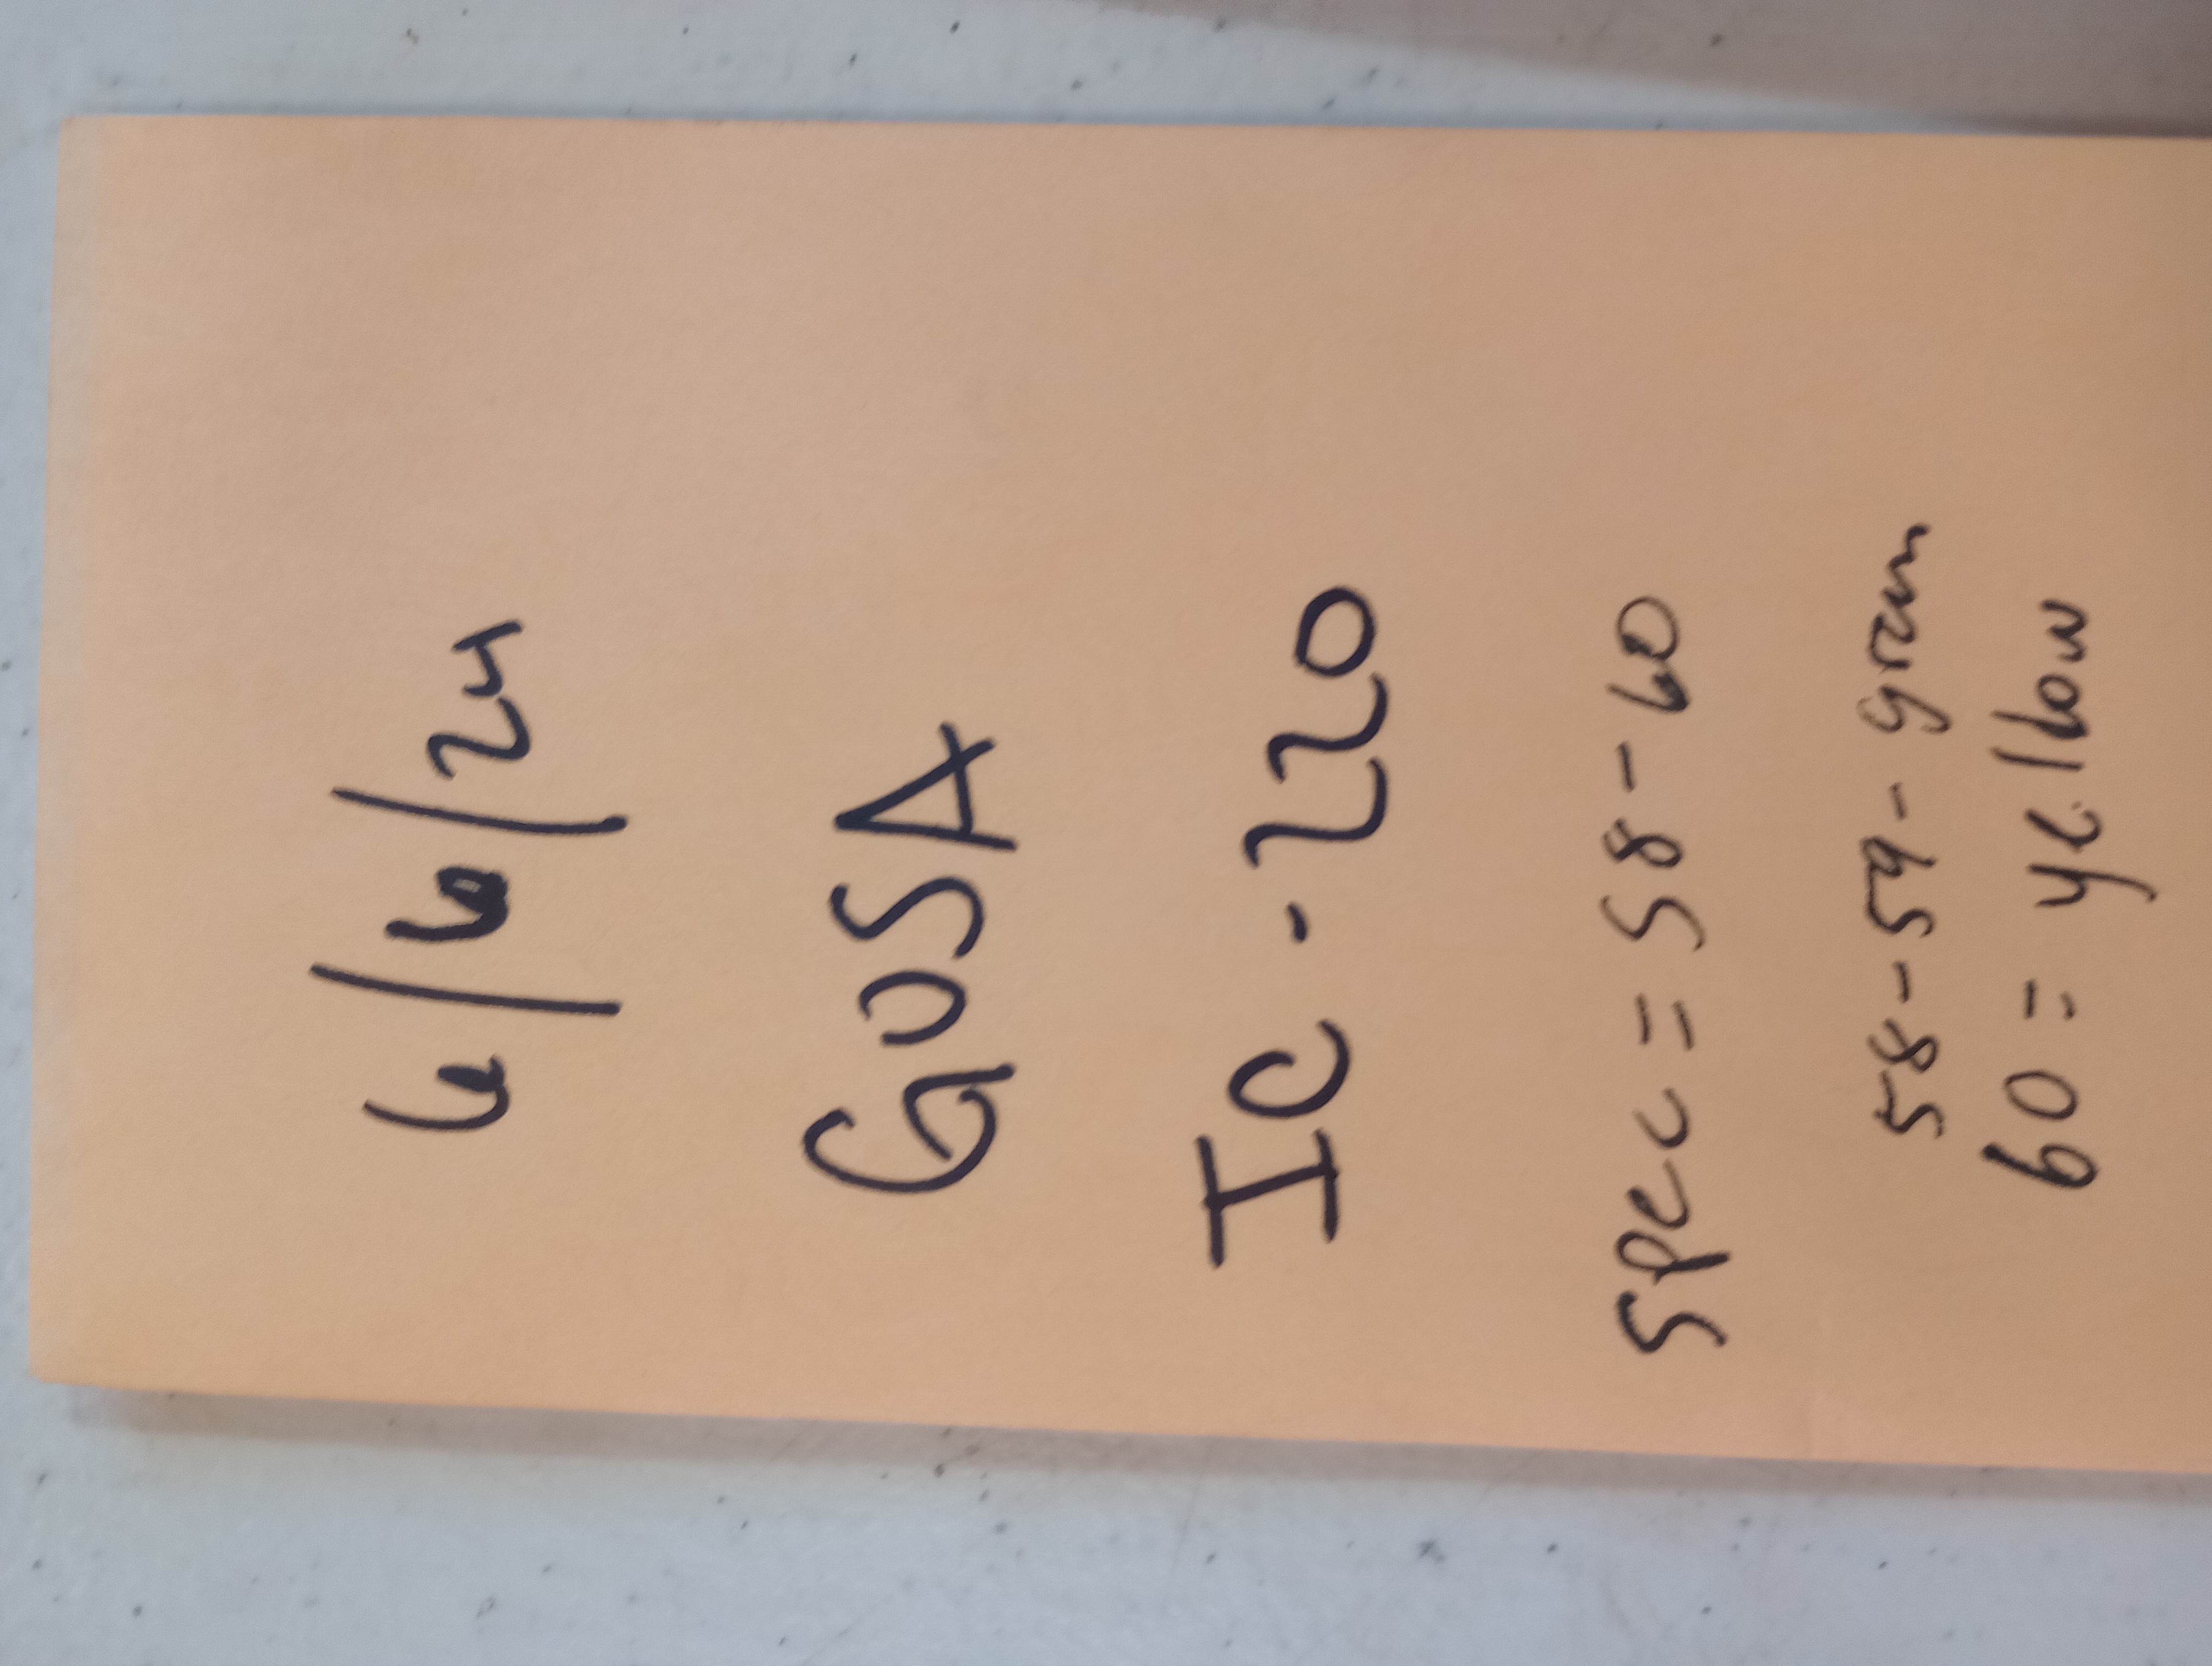 6/6/24
GOSA
IC-220
Spec = 58-60
58-59- green
60 = yellow